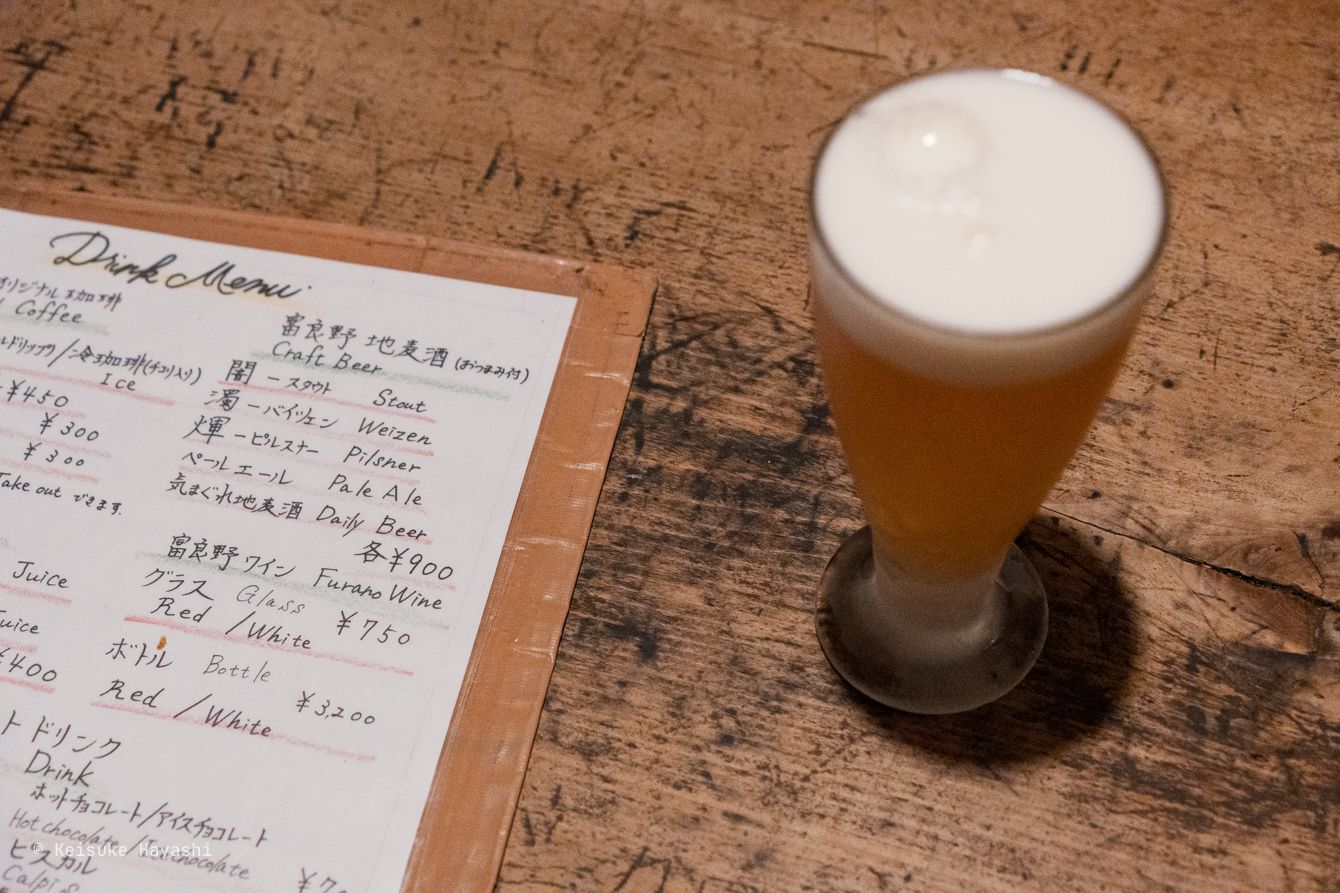 Drink Menu
オリジナル珈琲
Coffee
ドリップ/冷珈琲(チコリ入り)
Ice
¥450
¥300
¥300
Take out できます.
Juice
Juice
¥400
富良野 地麦酒 (おつまみ付)
Craft Beer
闇－スタウト Stout
濁－バイツェン Weizen
輝－ピルスナー Pilsner
ペールエール Pale Ale
気まぐれ地麦酒 Daily Beer
各¥900
富良野ワイン Furano Wine
グラス Glass
Red /White ¥750
ボトル Bottle
Red /White ¥3,200
ト ドリンク
Drink
ホットチョコレート/アイスチョコレート
Hot chocolate / chocolate
© Keisuke Hayashi